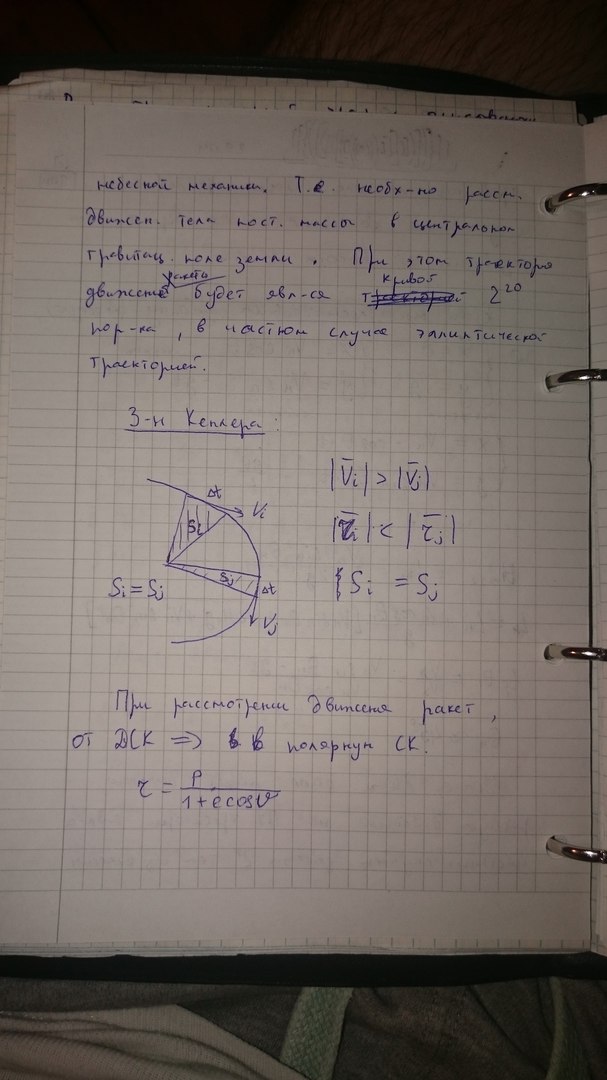 небесной механики. Т.е. необх-но рассм.
движен. тела пост. массы в центральном
гравитац. поле земли. При этом траектория
ракеты кривой
движение будет явл-ся 2го
пор-ка, в частном случае эллиптической
траекторией.
З-н Кеплера:
Δt Vi |V̄i| > |V̄j|
Si |r̄i| < |r̄j|
Sj
Si = Sj Δt Si = Sj
Vj
При рассмотрении движения ракет,
от ДСК ⇒ в полярную СК.
r = p / (1 + e cos ϑ)